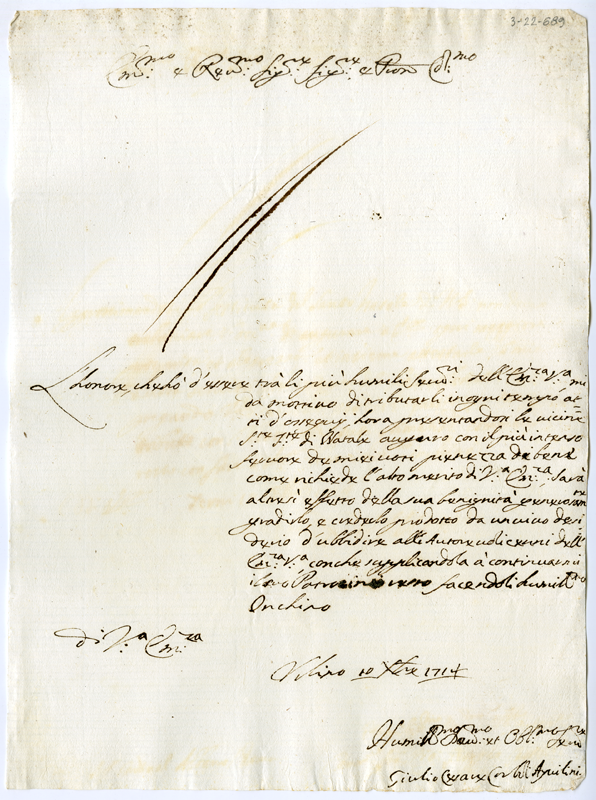 3-22-689
Em:mo e Rev:mo Sig:re Sig:re e Pron Col:mo
L'honore, che hò d'essere trà li più humili Serv:ri dell'Em:za V:a mi
da mottivo di tributarli in ogni tempo at=
ti d'ossequij, hora presentandosi le vicine
S:te F:te di Natale auguro con il più intenso
fervore de miei voti pienezza de beni
come richiede l'alto merito di V:a Em:za. Sarà
altresì effetto della sua benignità
gradirlo, e crederlo prodotto da un vivo desi
derio d'ubbidire alli Autorevoli cenni dell'
Em:za V:a con che supplicandola à continuarmi
il suo Patrocinio resto facendoli humill:mo
Inchino
di V:a Em:za
Urbino 10 Xbre 1714
Humill:mo Dev:mo et Obl:mo Serv:re
Giulio Cesare Corboli Aquilini